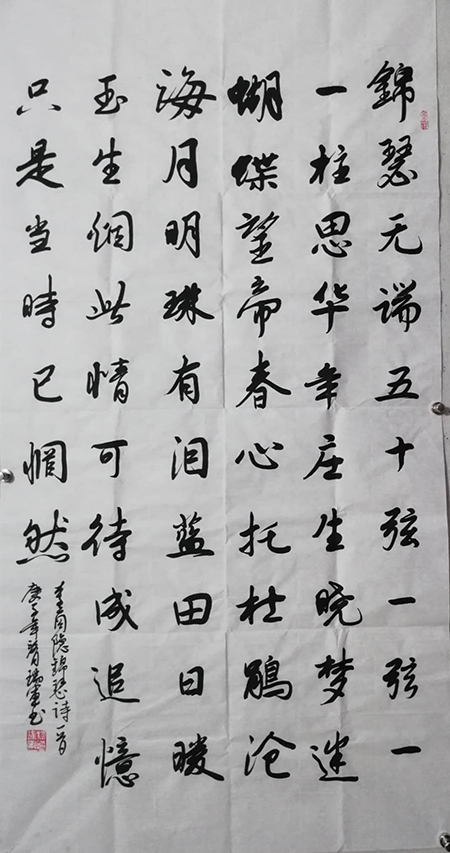 錦瑟无端五十弦一弦一
一柱思华年庄生晓梦迷
蝴蝶望帝春心托杜鹃沧
海月明珠有泪蓝田日暖
玉生烟此情可待成追憶
只是当時已惘然
李商隐錦瑟诗一首
庚子年